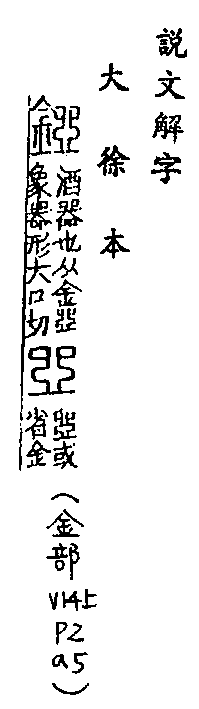 說文解字
大徐本
酒器也从金
象器形大口切
或
省金
(金部
V14上
P2
a5)